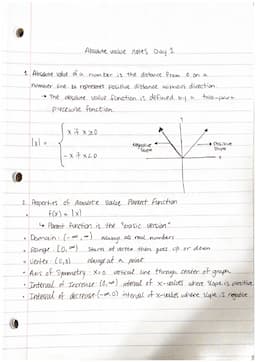 Absolute value notes Day 1
1. Absolute value of a number is the distance from 0 on a
number line to represent positive distance without direction.
→ The absolute value function is defined by a two-part
piecewise function.
|x| = { x if x≥0
-x if x<0
Negative slope
Positive slope
2. Properties of Absolute Value Parent Function
f(x) = |x|
↳ Parent function is the "basic version"
• Domain: (-∞,∞) always all real numbers
• Range: [0,∞) starts at vertex then goes up or down
• Vertex: (0,0) always at a point
• Axis of Symmetry: x=0 vertical line through center of graph
• Interval of Increase: (0,∞) interval of x-values where slope is positive
• Interval of decrease: (-∞,0) interval of x-values where slope is negative